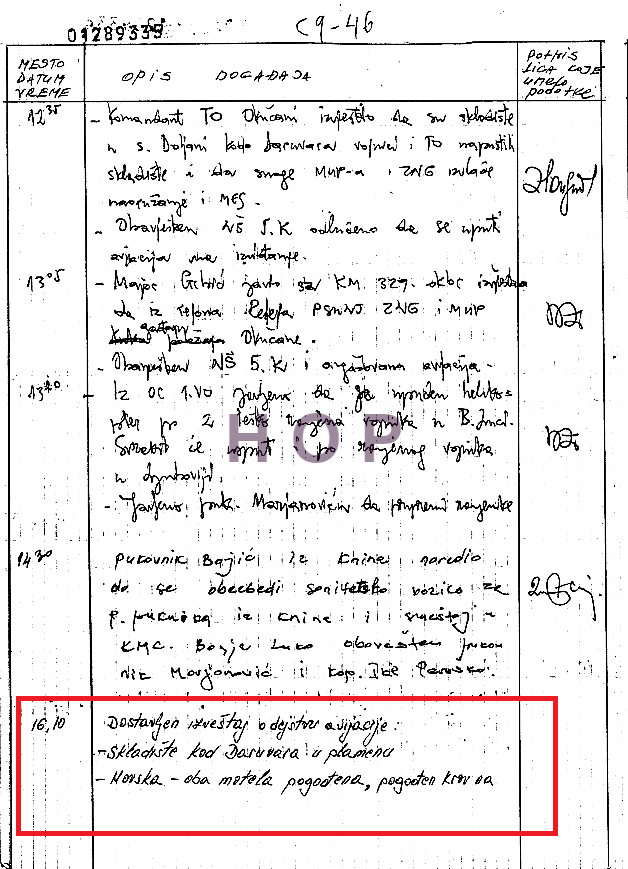 01289339
C9-46
MESTO
DATUM
VREME
OPIS DOGAĐAJA
potpis
lica koje
unelo
podatke
12 35
- Komandant TO Okučani izvestio da su skladište
u s. Doljani kod Daruvara vojnici i TO napustili
skladište i da snage MUP-a i ZNG izvlače
naoružanje i MES.
- Obavješten NŠ 5.K odlučeno da se uputi
avijacija na
13 05
- Major javio sa KM 329.
da iz rejona ZNG i MUP
Okučane.
- Obavješten NŠ 5.K i avijacija.
13 20
- Iz OC 1.VO javljeno da je upućen heliko-
pter po 2 teško ranjena vojnika u B.
će uputi i po ranjenog vojnika
u
- Javljeno puk. Marjanoviću da pripremi ranjenike
HOP
14 30
Pukovnik Bajić iz Knina naredio
da se obezbedi sanitetsko vozilo za
p. pukovnika iz Knina i smeštaj u
KMC. Banja Luka obavešten pukov
nik Marjanović i kap.
16,10
Dostavljen izveštaj o dejstvu avijacije:
- Skladište kod Daruvara u plamenu
- Novska - oba motela pogođena, pogođen krov na